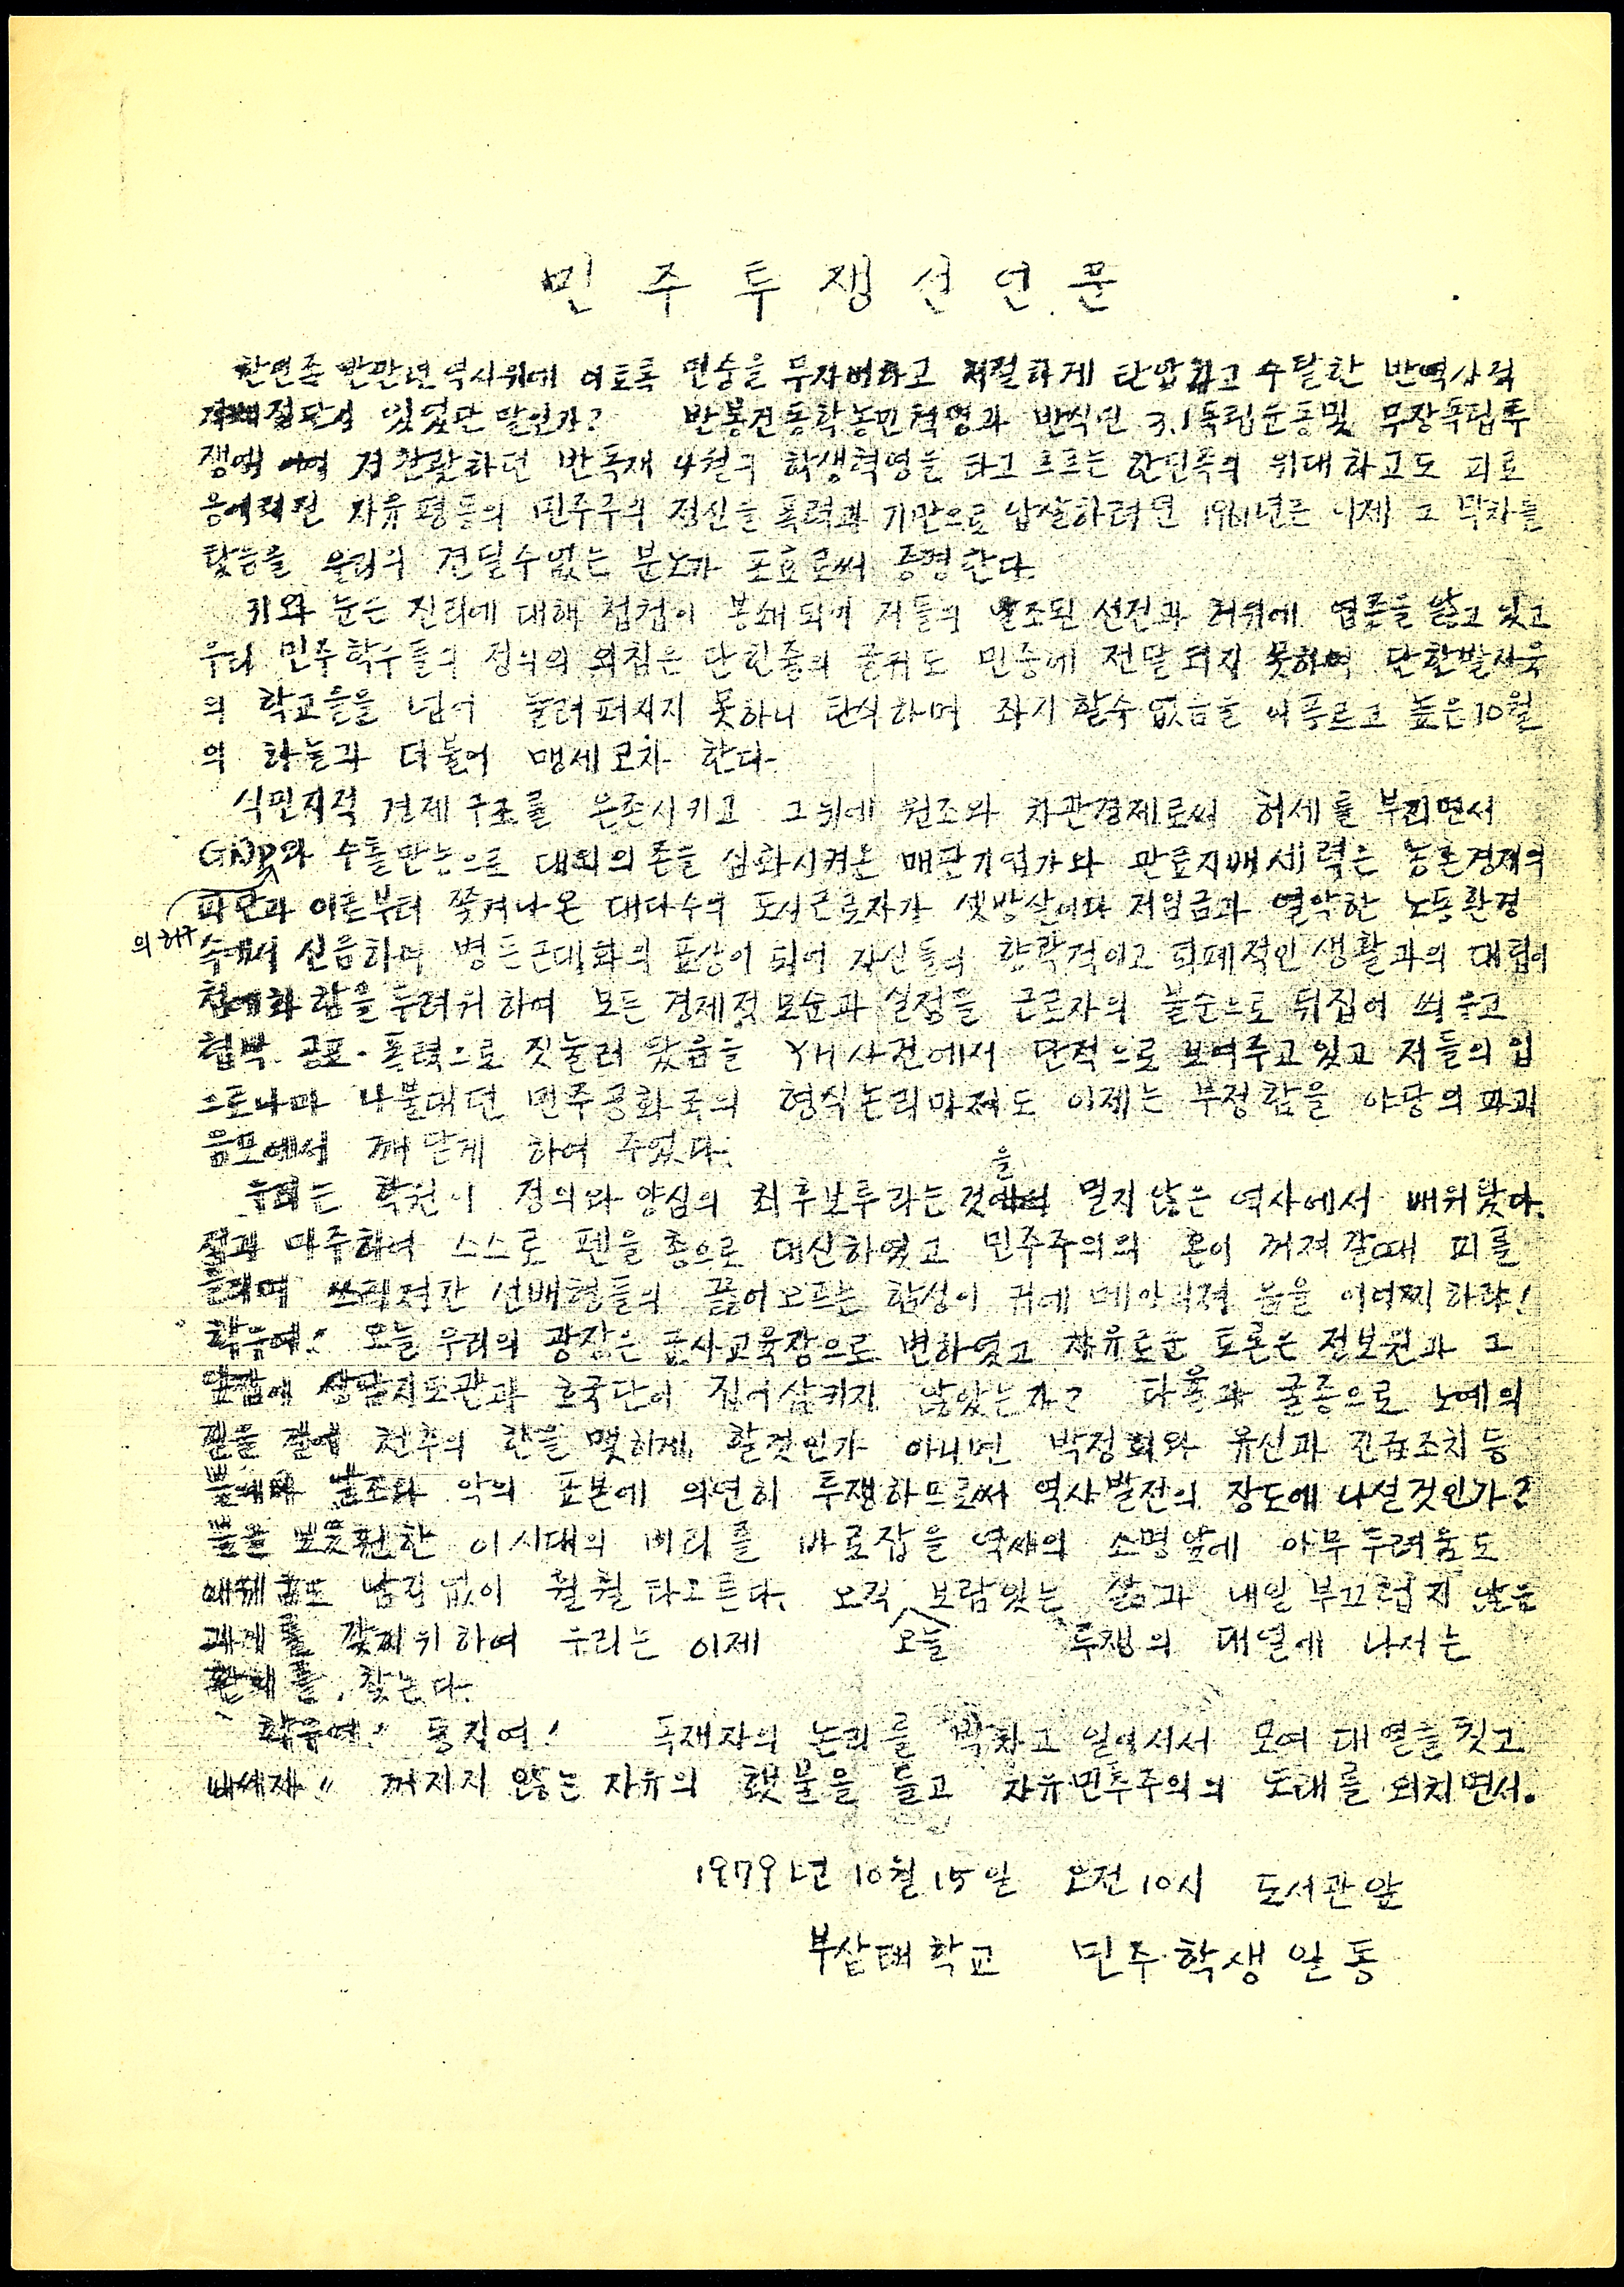 민주투쟁선언문
한민족 반만년 역사위에 이토록 민중을 무자비하고 처절하게 탄압하고 수탈한 반역사적
지배집단이 있었단 말인가? 반봉건동학농민혁명과 반식민 3.1독립운동및 무장독립투
쟁에 저 찬란하던 반독재 4월 학생혁명을 타고 흐르는 한민족의 위대하고도 피로
응어리진 자유평등의 민주주의 정신을 폭력과 기만으로 압살하려던 1961년은 이제 그 막차를
탔음을 우리의 견딜수없는 분노가 포효로써 증명한다.
귀와 눈은 진리에 대해 첩첩이 봉쇄되어 저들의 날조된 선전과 허위에 염증을 앓고 있고
우리 민주학우들의 정의의 외침은 단 한줄의 글귀도 민중에 전달되지 못하여 단 한발자욱
의 학교를을 넘어 울려퍼지지 못하니 탄식하며 좌시할수 없음을 이 푸르고 높은 10월
의 하늘과 더불어 맹세코자 한다.
식민지적 경제구조를 온존시키고 그위에 원조와 차관경제로써 허세를 부리면서
GNP와 수출만능으로 대외의존을 심화시켜온 매판기업가와 관료지배세력은 농촌경제의
파탄과 이로부터 쫓겨나온 대다수의 도시근로자가 셋방살이다 저임금과 열악한 노동환경
의 허구
속에서 신음하며 병든근대화의 표상이 되어 자신들의 향락적이고 퇴폐적인 생활과의 대립이
첨예화 함을 두려워하여 모든 경제적 모순과 실정을 근로자의 불순으로 뒤집어 씌우고
협박. 공포. 폭력으로 짓눌러 왔음을 YH사건에서 단적으로 보여주고있고 저들의 입
으로나마 나불대던 민주공화국의 형식논리마저도 이제는 부정함을 야당의 파괴
음모에서 깨닫게 하여 주었다.
우리는 학원이 정의와 양심의 최후보루라는 것을 멀지않은 역사에서 배워왔다.
적과 마주하여 스스로 펜을 총으로 대신하였고 민주주의의 혼이 꺼져갈때 피를
흘리며 쓰러져간 선배형들의 끓어오르는 함성이 귀에 메아리쳐 옴을 어이찌하랴!
학우여! 오늘 우리의 광장은 군사교육장으로 변하였고 자유로운 토론은 정보원과 그
앞잡에 상담지도관과 호국단이 집어삼키지 않았는가? 타율과 굴종으로 노예의
길을 걸어 천추의 한을 맺히게 할것인가 아니면 박정희와 유신과 긴급조치등
불의의 날조와 악의 표본에 의연히 투쟁하므로써 역사발전의 장도에 나설것인가?
불을 보듯훤한 이시대의 비리를 바로잡을 역사의 소명앞에 아무 두려움도
남김없이 훨훨 타오른다. 오직 보람있는 삶과 내일 부끄럽지 않을
과제를 갖기위하여 우리는 이제 오늘 투쟁의 대열에 나서는
환희를 찾는다.
학우여! 동지여! 독재자의 논리를 박차고 일어서서 모여 대열을 짓고
나서자 〃 꺼지지 않는 자유의 횃불을 들고 자유민주주의의 노래를 외치면서.
1979년 10월 15일 오전 10시 도서관앞
부산대학교 민주학생일동